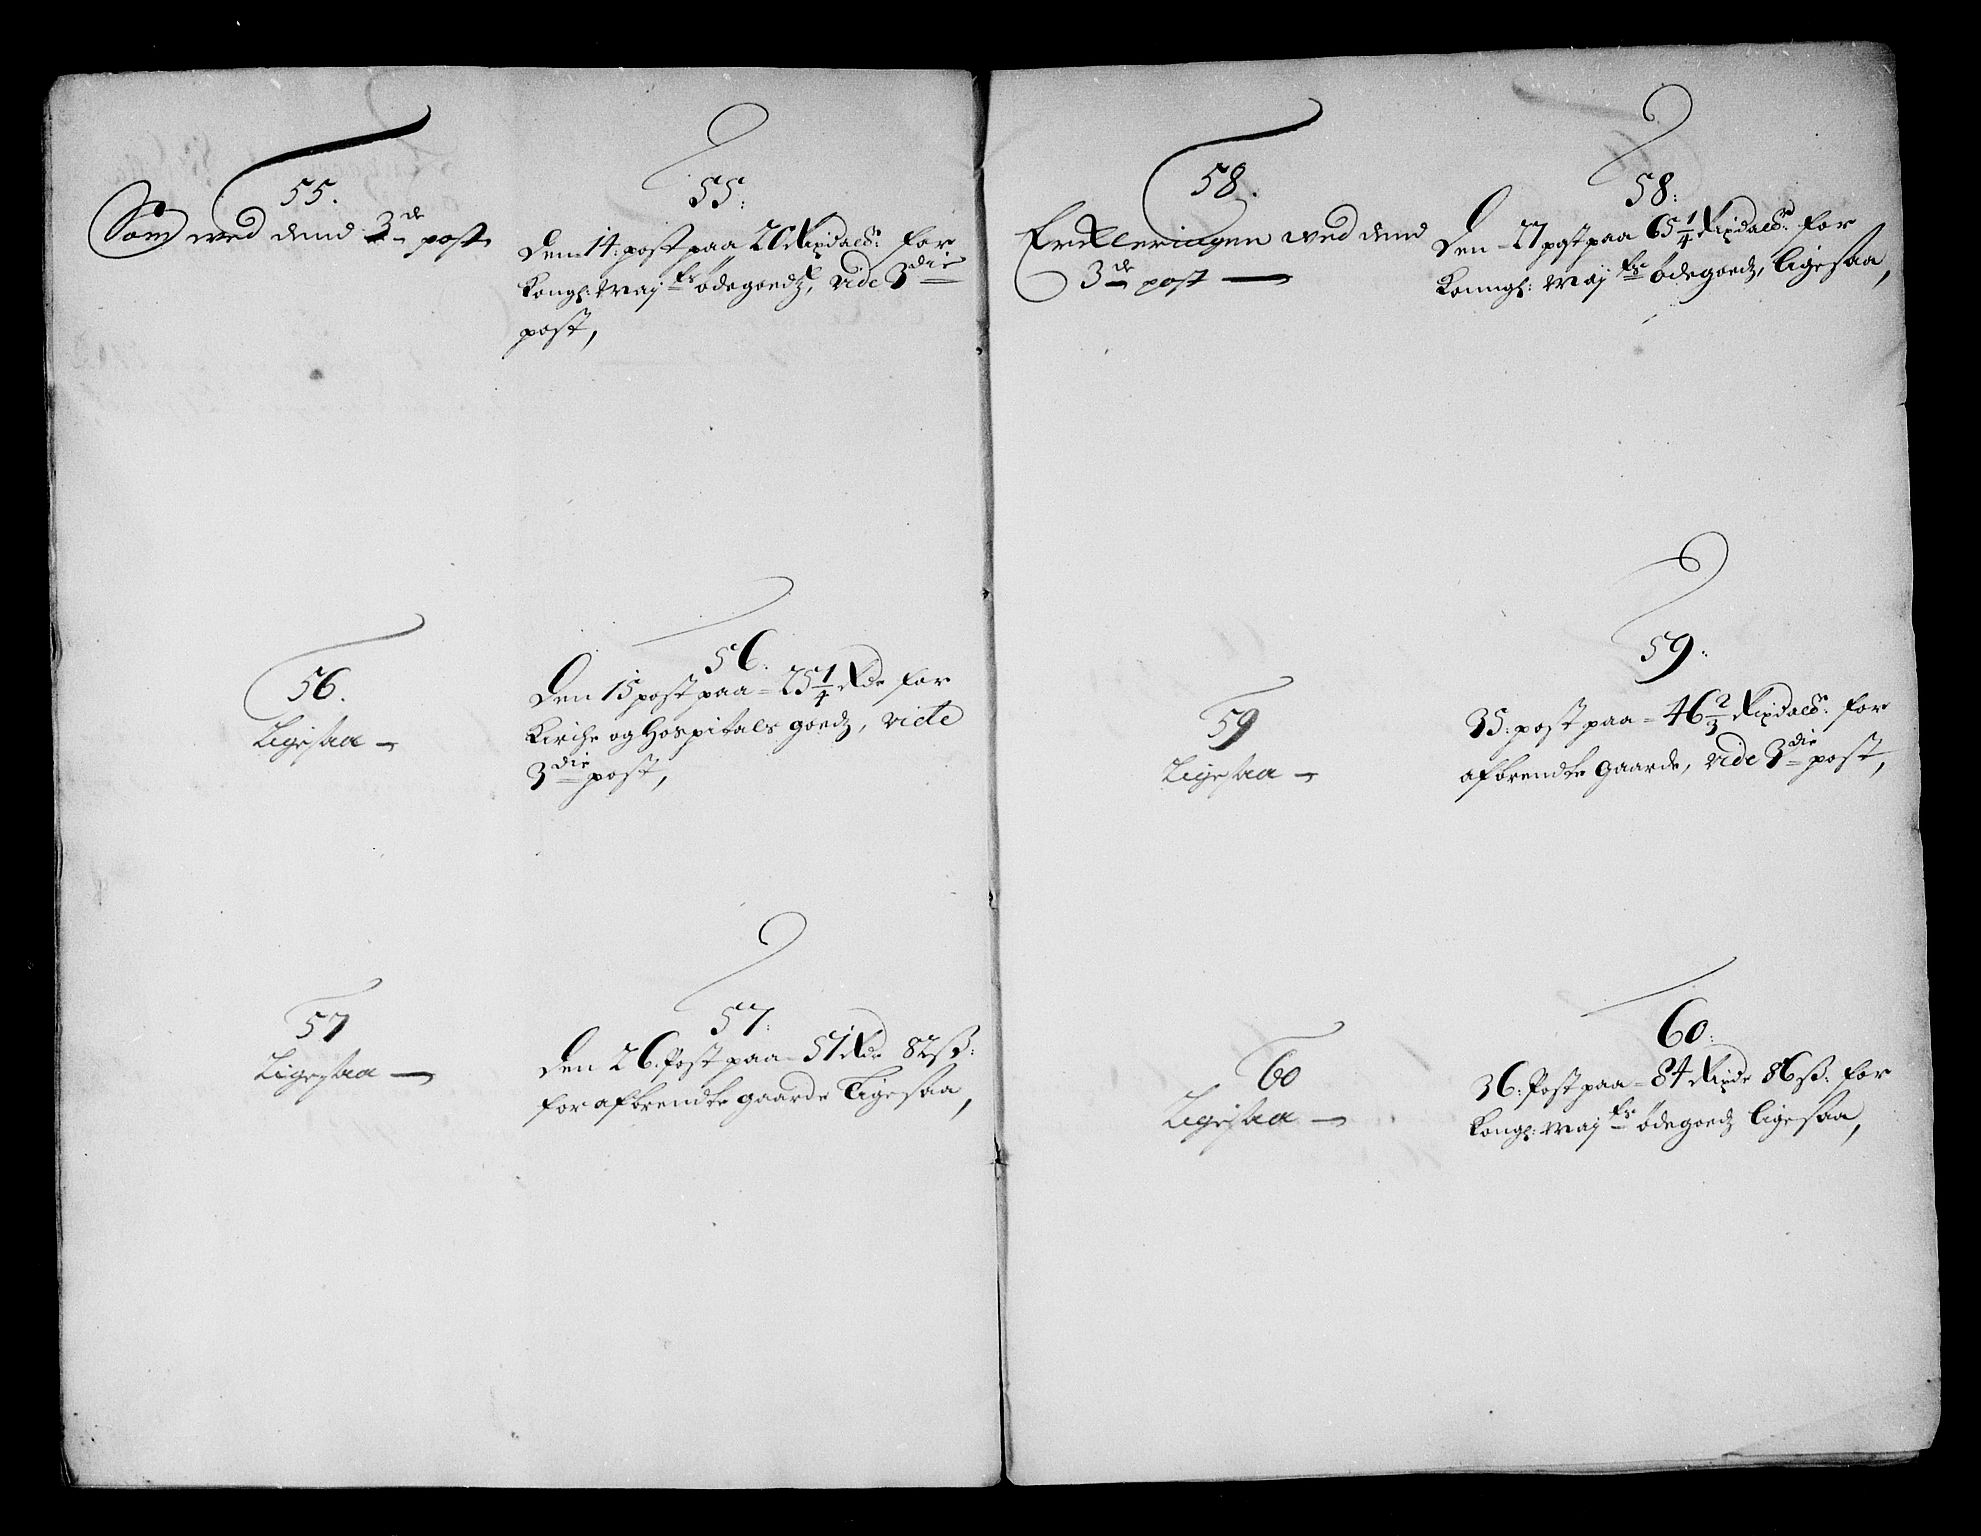 55.
Som wed dend 3de post
55:
Den 14: post paa 20 Rixdaler: for
Kongl: Maytz ødegoedz, vide 3die
post,
56.
Ligesaa –
56:
Den 15 post paa = 25 1/4 Rdr for
Kirche og Hospitals goedz, vide
3die post,
57
Ligesaa —
57:
Den 26. Post paa = 51 Rdr 82 ß:
for afbrendte gaarde Ligesaa,
58.
Erkleringen wed dend
3de post —
58:
Den = 27 post paa 65 1/4 Rixdaler: for
Konngl: Maytz ødegoedz, Ligesaa,
59
Ligesaa –
59:
35: post paa = 46 2/3 Rixdaler: for
afbrendte gaarde, vide 3die post,
60
Ligesaa –
60:
36: Post paa = 84 Rixdr 86 ß: for
Kongl: Maytz ødegoedz Ligesaa,